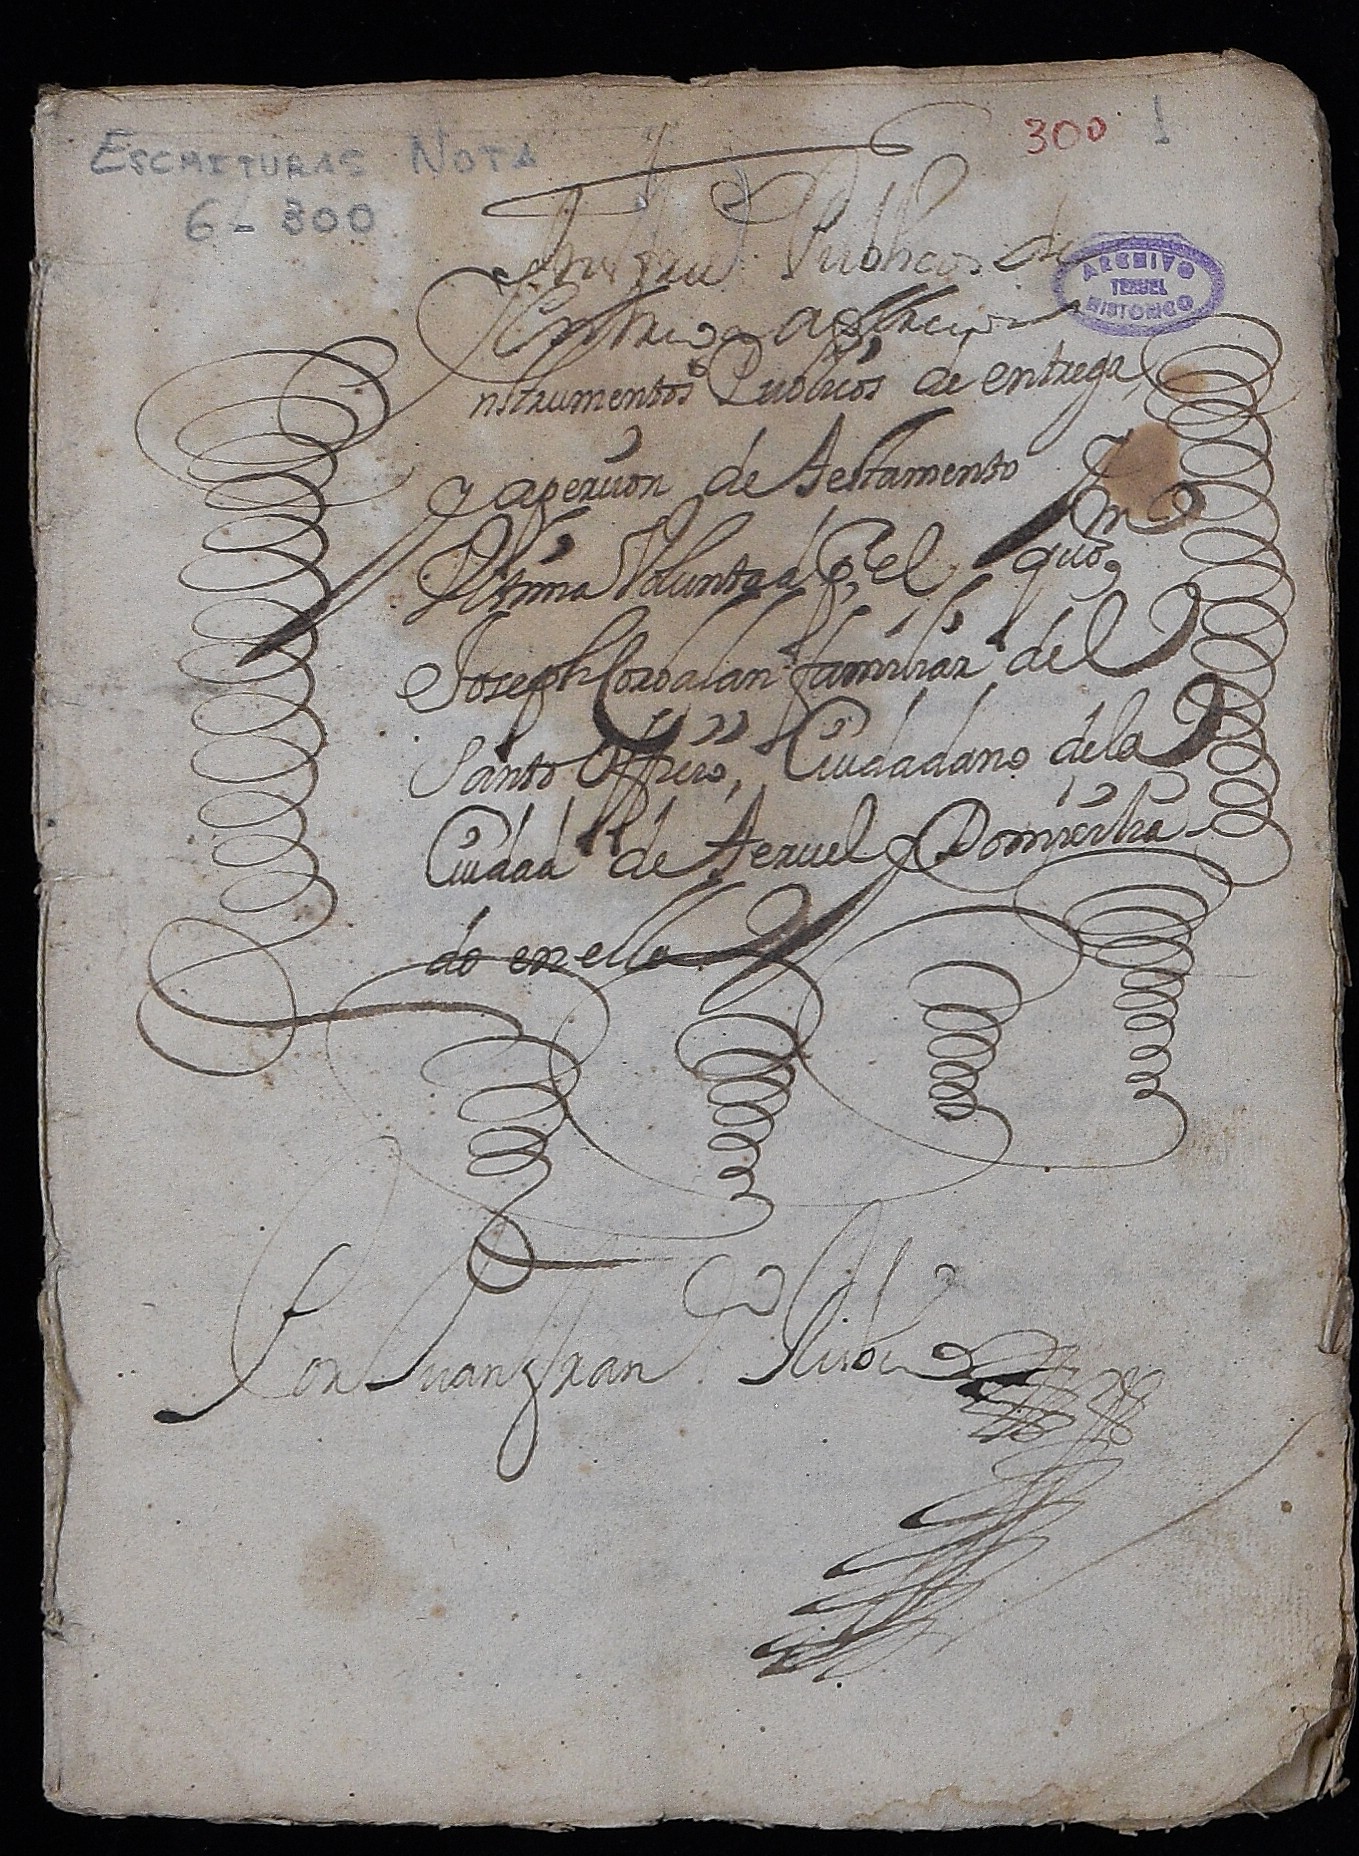 ESCRITURAS NOTA
6-300
300 1
ARCHIVO
TERUEL
HISTORICO
Publicos de
nstrumentos Publicos de entrega
y aperción de Testamento y
Vltima Voluntad del quo
Joseph Corbalan familiar del
Santo Officio, Ciudadano dela
Ciudad de Teruel y Domicilia
do en ella
Por Juan Fran